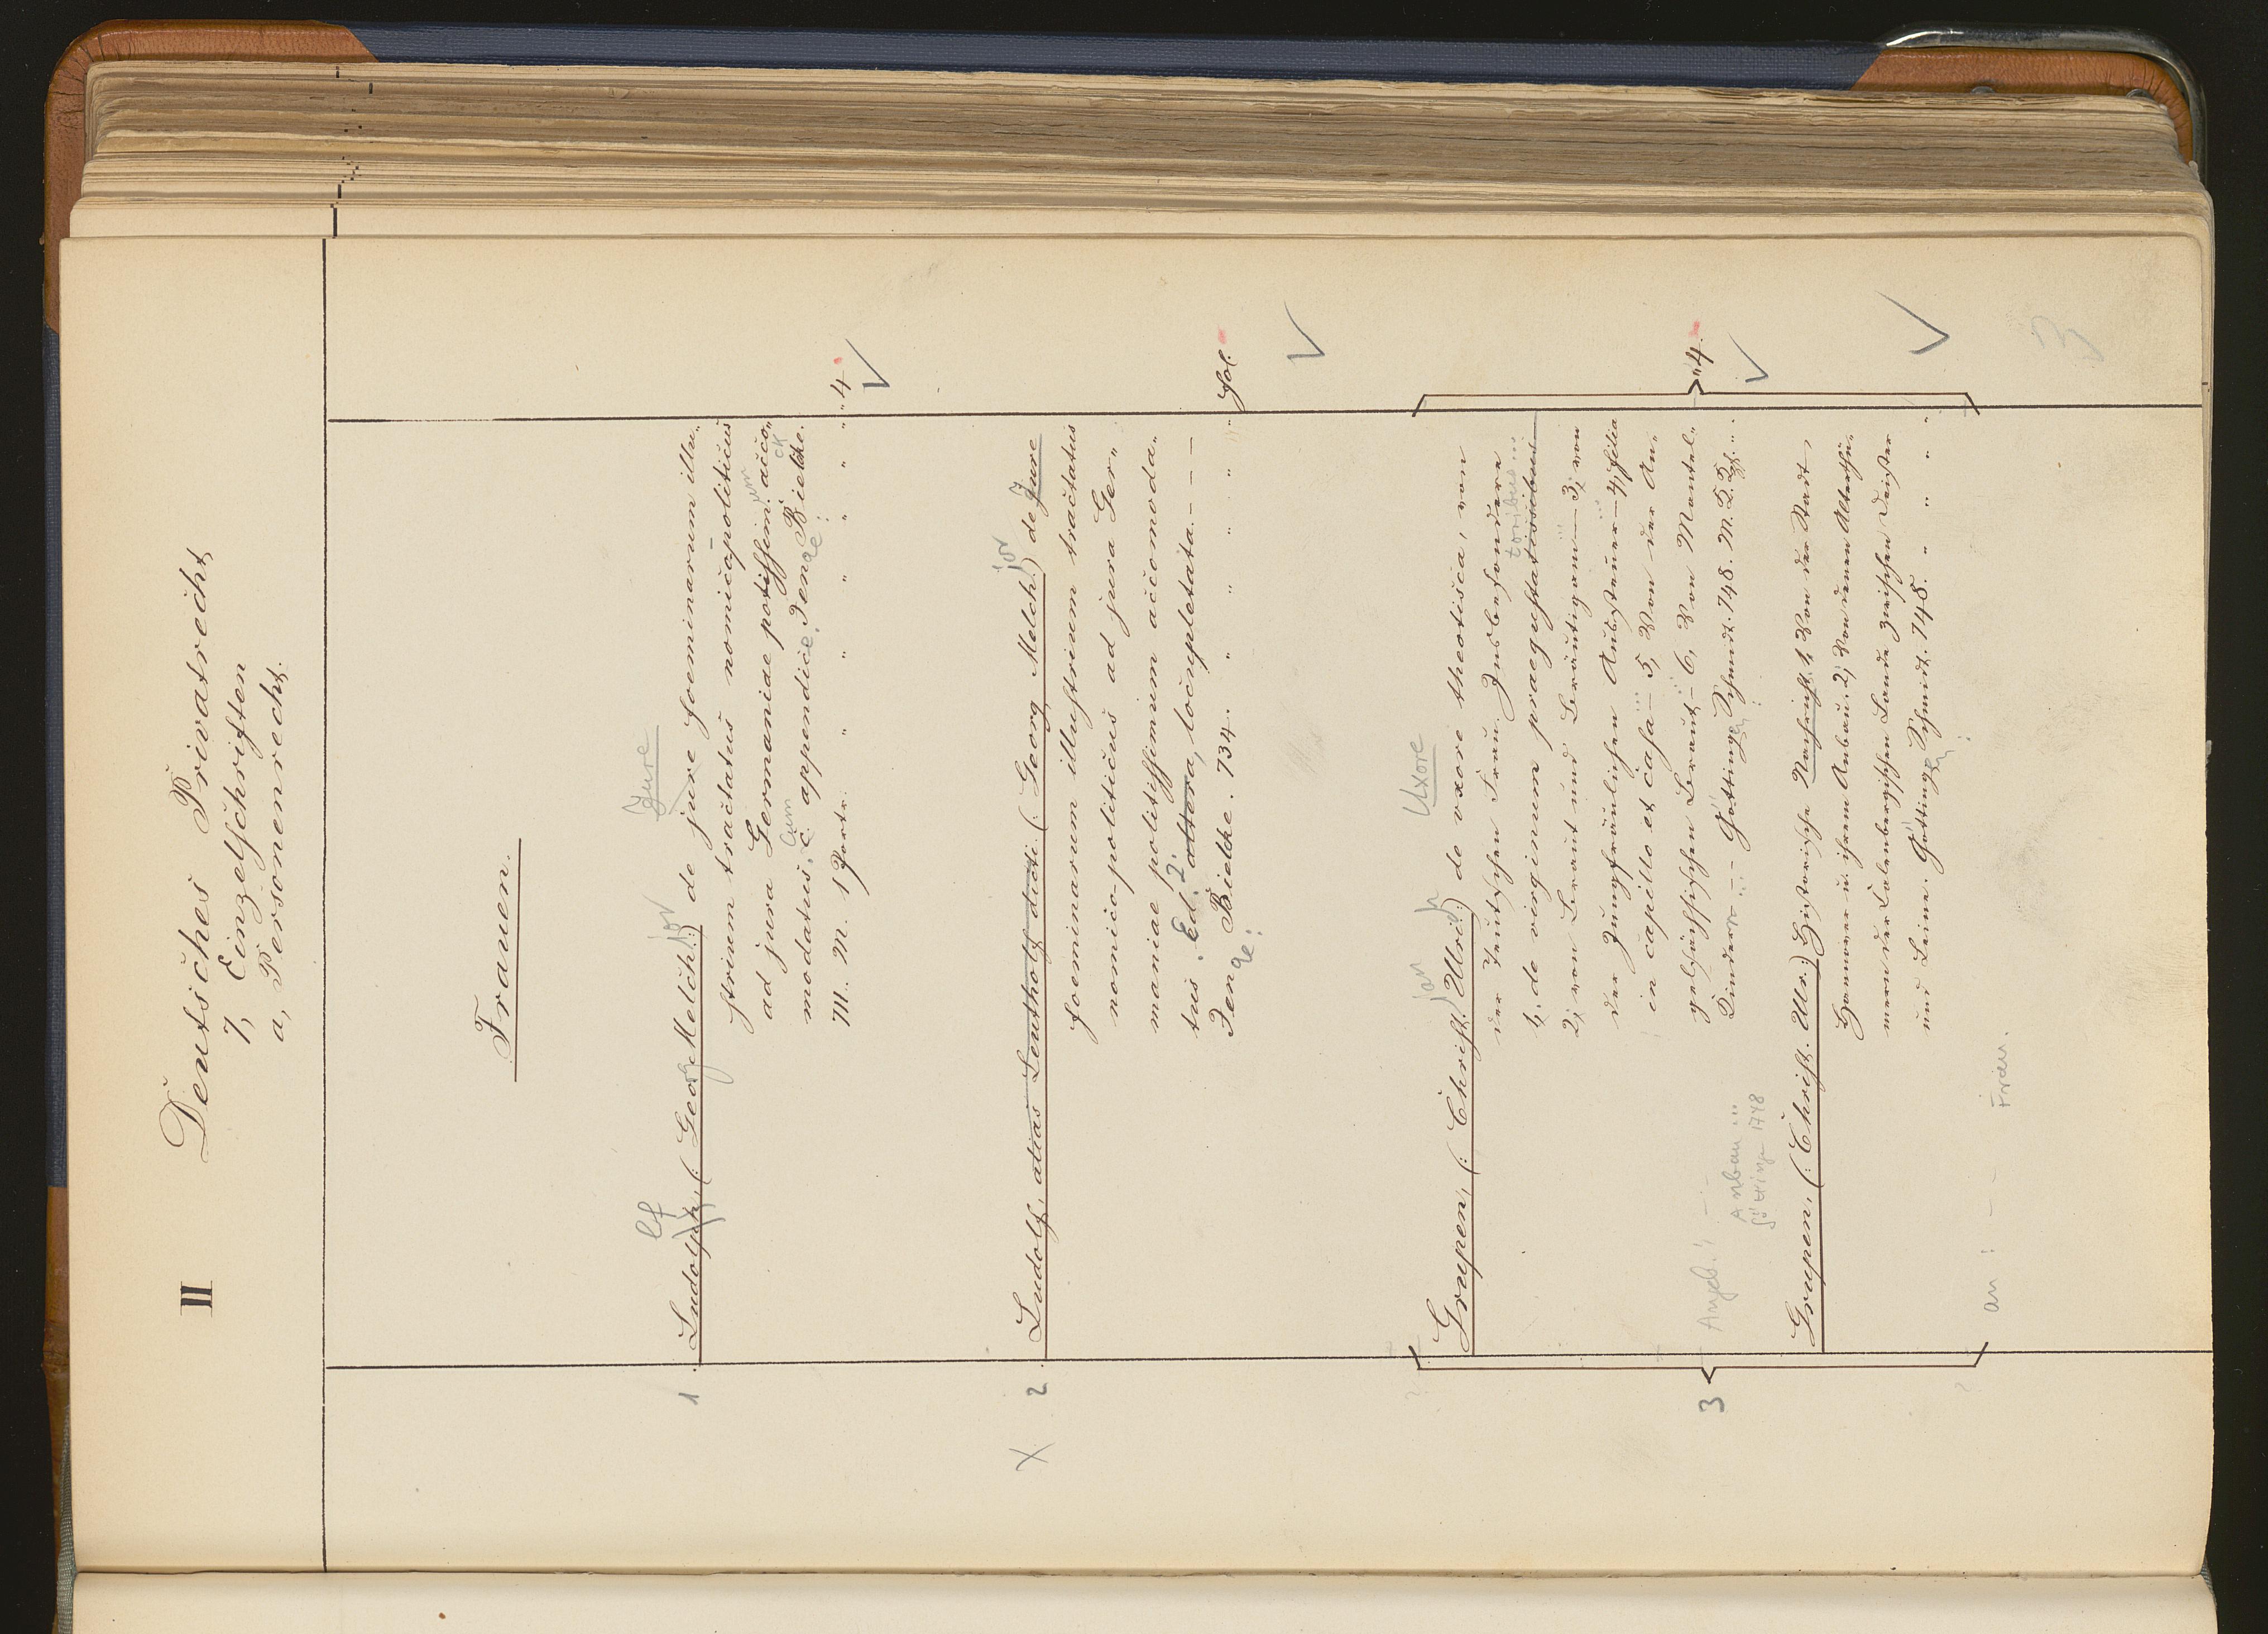 II Deutsches Privatrecht
7, Einzelschriften
a, Personenrecht.
Frauen.
lf Jure
1 Ludolph, (: Georg Melch:) ior de jure foeminarum illu-
strium tractatus nomico-politicus
ad jura Germaniae potissimum acco-
modatus, c. appendice. Jenae: Bielcke.
M. M. 1 Portr. " " " " " " "4.
X 2 Ludolf, alias Leutholf dicti (: Georg Melch:) ior de Jure
foeminarum illustrium tractatus
nomico-politicus ad jura Ger-
maniae politissimum accomoda-
tus. Ed. 2. altera, locupletata. - - -
Jenae: Bielcke. 734. " " " " " fol.
Uxore
3 Grupen, (: Christ. Ulrich:) de uxore theotisca, von
der Teutschen Frau. Insbesondere
1, de virginum praegustatoribus
toribus...
2, von Braut und Bräutigam – 3, von
der Jungfräulichen Aussteuer – 4, filia
in capillo et casa – 5, Von der An-
gelsächsischen Braut – 6, Von Mantel-
Kindern – – Göttingen: Schmidt. 748. M. "4.
Anbau ...
Göttingen 1748
Grupen, (: Christ. Ulr.:) Historische Nachricht, 1, Von der Stadt
Hannover u. ihrem Anbau. 2, Von denen Alterthü-
mern der Calenbergischen Lande zwischen Deister
und Leine. Göttingen: Schmidt. 748. " " " "
an : – – Frauen.
3